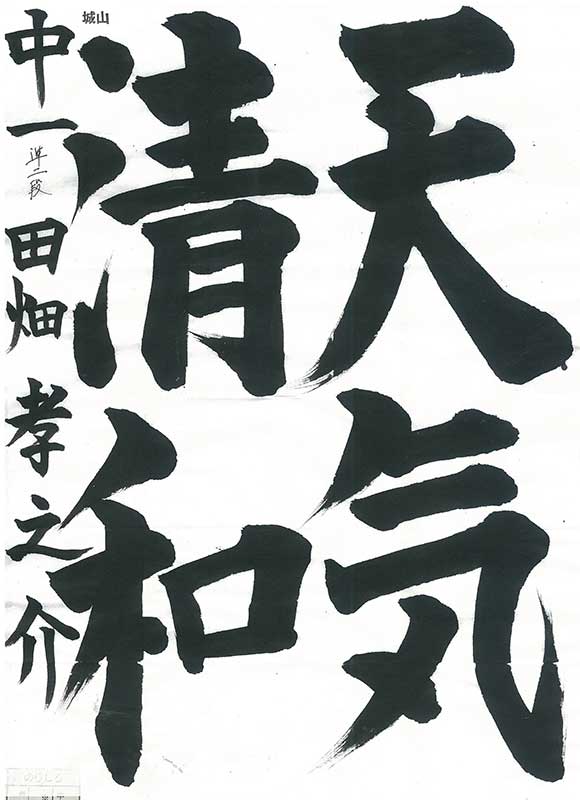 天気
清和
城山
中一 準二段 田畑 孝之介
のりしろ